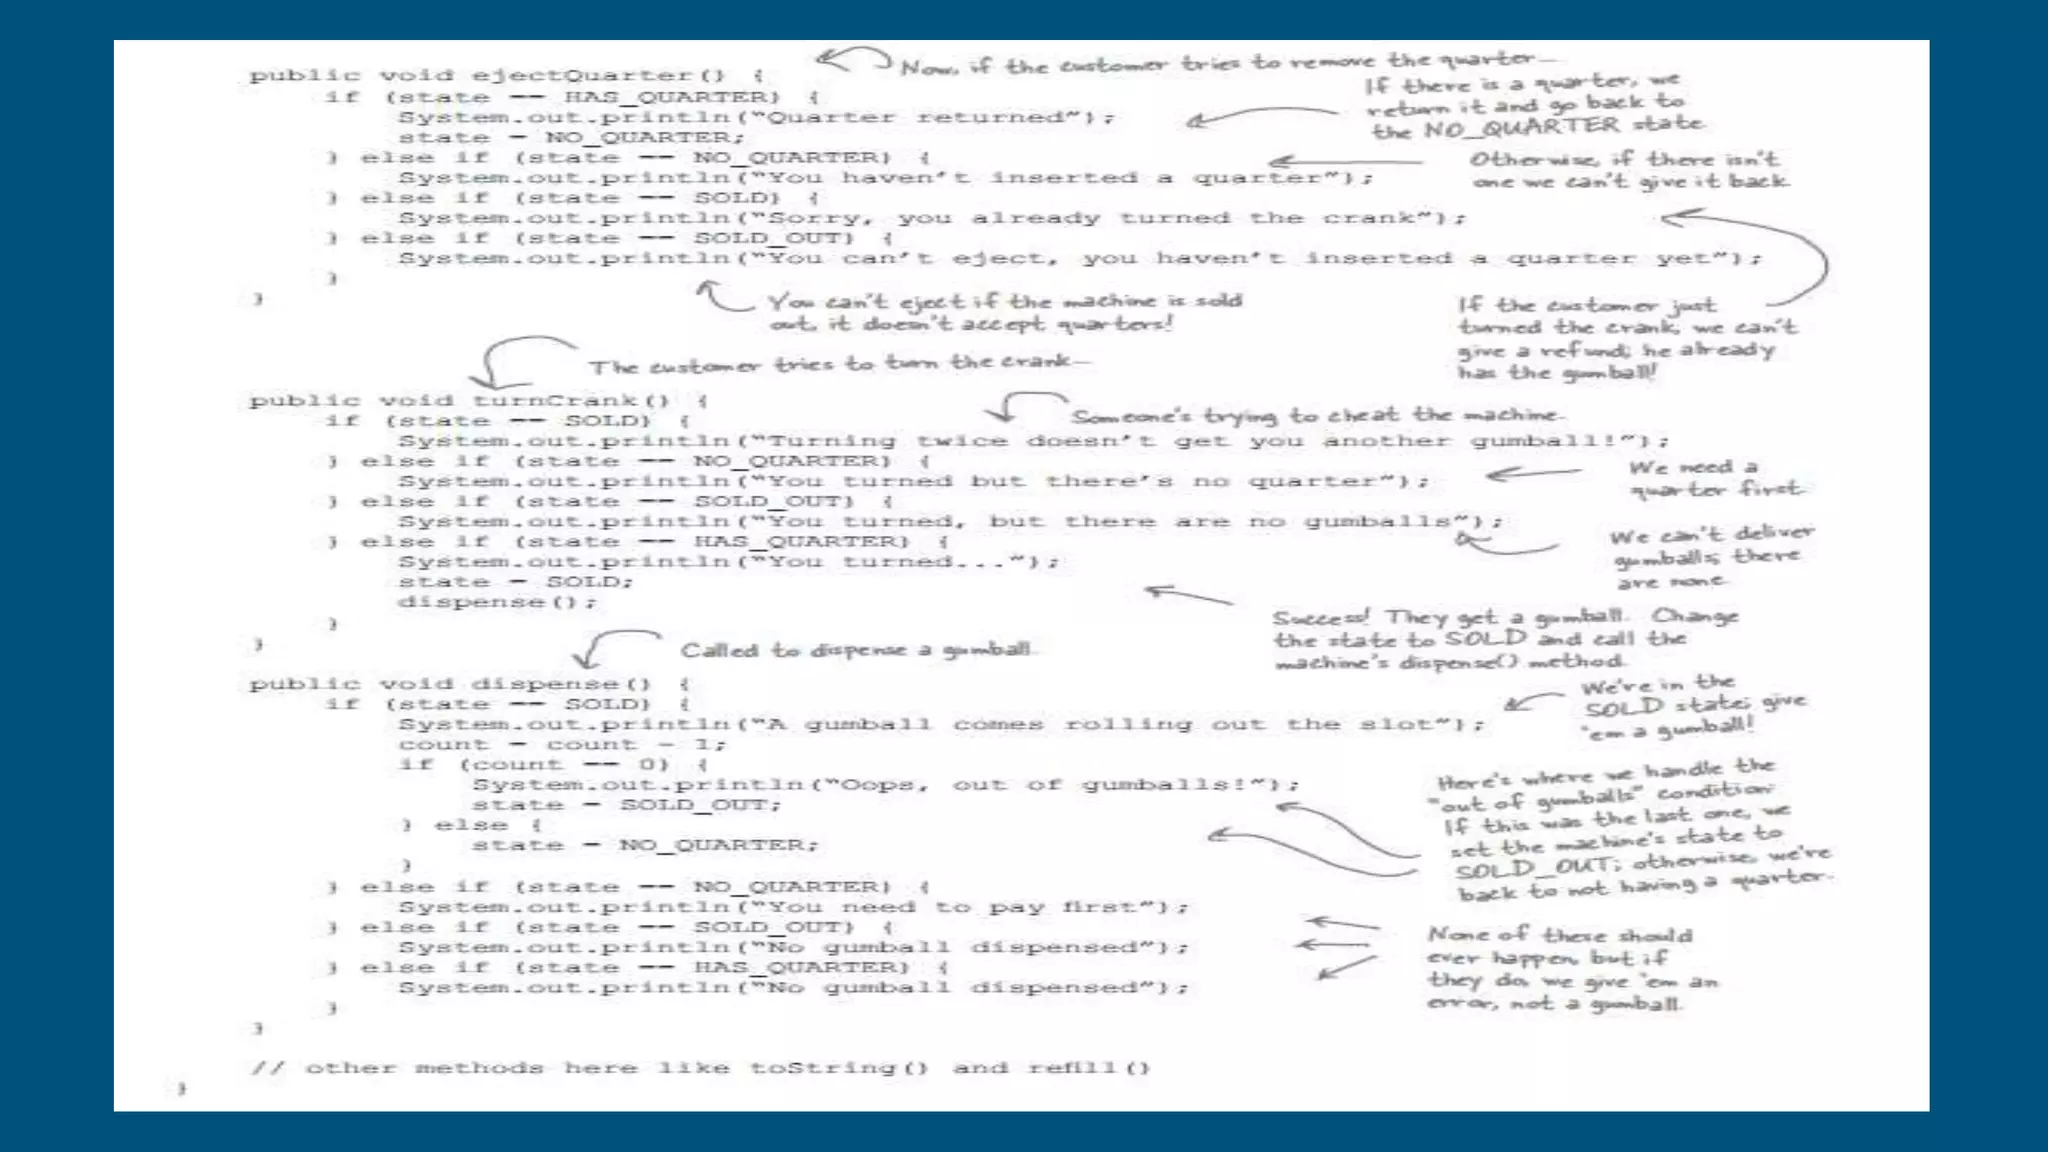 Now, if the customer tries to remove the quarter...
public void ejectQuarter() {
if (state == HAS_QUARTER) {
System.out.println("Quarter returned");
state = NO_QUARTER;
If there is a quarter, we
return it and go back to
the NO_QUARTER state.
} else if (state == NO_QUARTER) {
System.out.println("You haven't inserted a quarter");
Otherwise, if there isn't
one we can't give it back.
} else if (state == SOLD) {
System.out.println("Sorry, you already turned the crank");
} else if (state == SOLD_OUT) {
System.out.println("You can't eject, you haven't inserted a quarter yet");
}
}
You can't eject if the machine is sold
out, it doesn't accept quarters!
If the customer just
turned the crank, we can't
give a refund; he already
has the gumball!
The customer tries to turn the crank...
public void turnCrank() {
if (state == SOLD) {
Someone's trying to cheat the machine.
System.out.println("Turning twice doesn't get you another gumball!");
} else if (state == NO_QUARTER) {
System.out.println("You turned but there's no quarter");
We need a
quarter first.
} else if (state == SOLD_OUT) {
System.out.println("You turned, but there are no gumballs");
We can't deliver
gumballs; there
are none.
} else if (state == HAS_QUARTER) {
System.out.println("You turned...");
state = SOLD;
dispense();
}
}
Success! They get a gumball. Change
the state to SOLD and call the
machine's dispense() method.
Called to dispense a gumball.
public void dispense() {
if (state == SOLD) {
System.out.println("A gumball comes rolling out the slot");
We're in the
SOLD state; give
'em a gumball!
count = count - 1;
if (count == 0) {
System.out.println("Oops, out of gumballs!");
state = SOLD_OUT;
} else {
state = NO_QUARTER;
}
Here's where we handle the
"out of gumballs" condition:
If this was the last one, we
set the machine's state to
SOLD_OUT; otherwise, we're
back to not having a quarter.
} else if (state == NO_QUARTER) {
System.out.println("You need to pay first");
} else if (state == SOLD_OUT) {
System.out.println("No gumball dispensed");
} else if (state == HAS_QUARTER) {
System.out.println("No gumball dispensed");
}
}
None of these should
ever happen, but if
they do, we give 'em an
error, not a gumball.
// other methods here like toString() and refill()
}